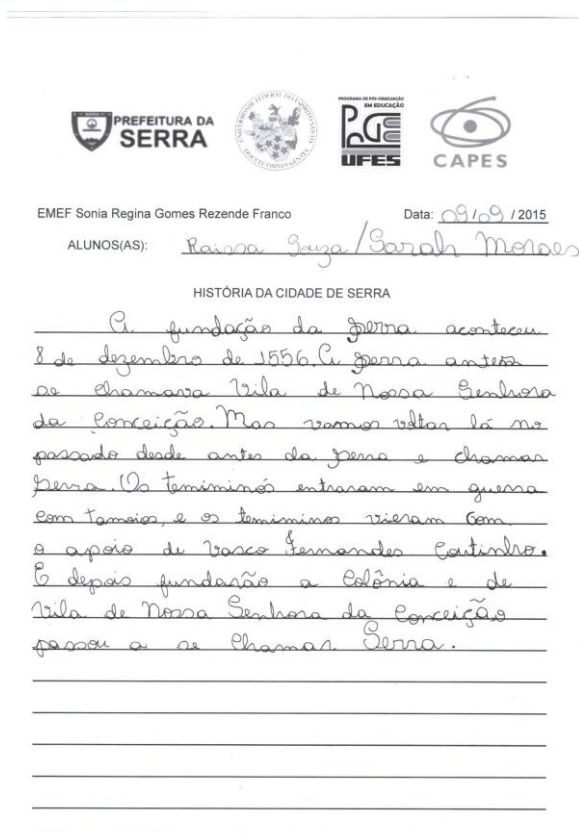 PREFEITURA DA
SERRA
UNIVERSIDADE FEDERAL DO ESPÍRITO SANTO
DOCETE OMNES GENTES
PROGRAMA DE PÓS-GRADUAÇÃO
EM EDUCAÇÃO
PPGE
UFES
CAPES
EMEF Sonia Regina Gomes Rezende Franco
Data: 09/09 / 2015
ALUNOS(AS): Raissa Souza/Sarah Moraes
HISTÓRIA DA CIDADE DE SERRA
A fundação da Serra aconteceu
8 de dezembro de 1556. A Serra antes
se chamava Vila de Nossa Senhora
da Conceição. Mas vamos voltar lá no
passado desde antes da Serra e chamar
Serra. Os temiminós entraram em guerra
com tamoios, e os temiminos vieram com
o apoio de Vasco Fernandes Coutinho.
E depois fundarão a Colônia e de
Vila de Nossa Senhora da Conceição
passou a se chamar Serra.